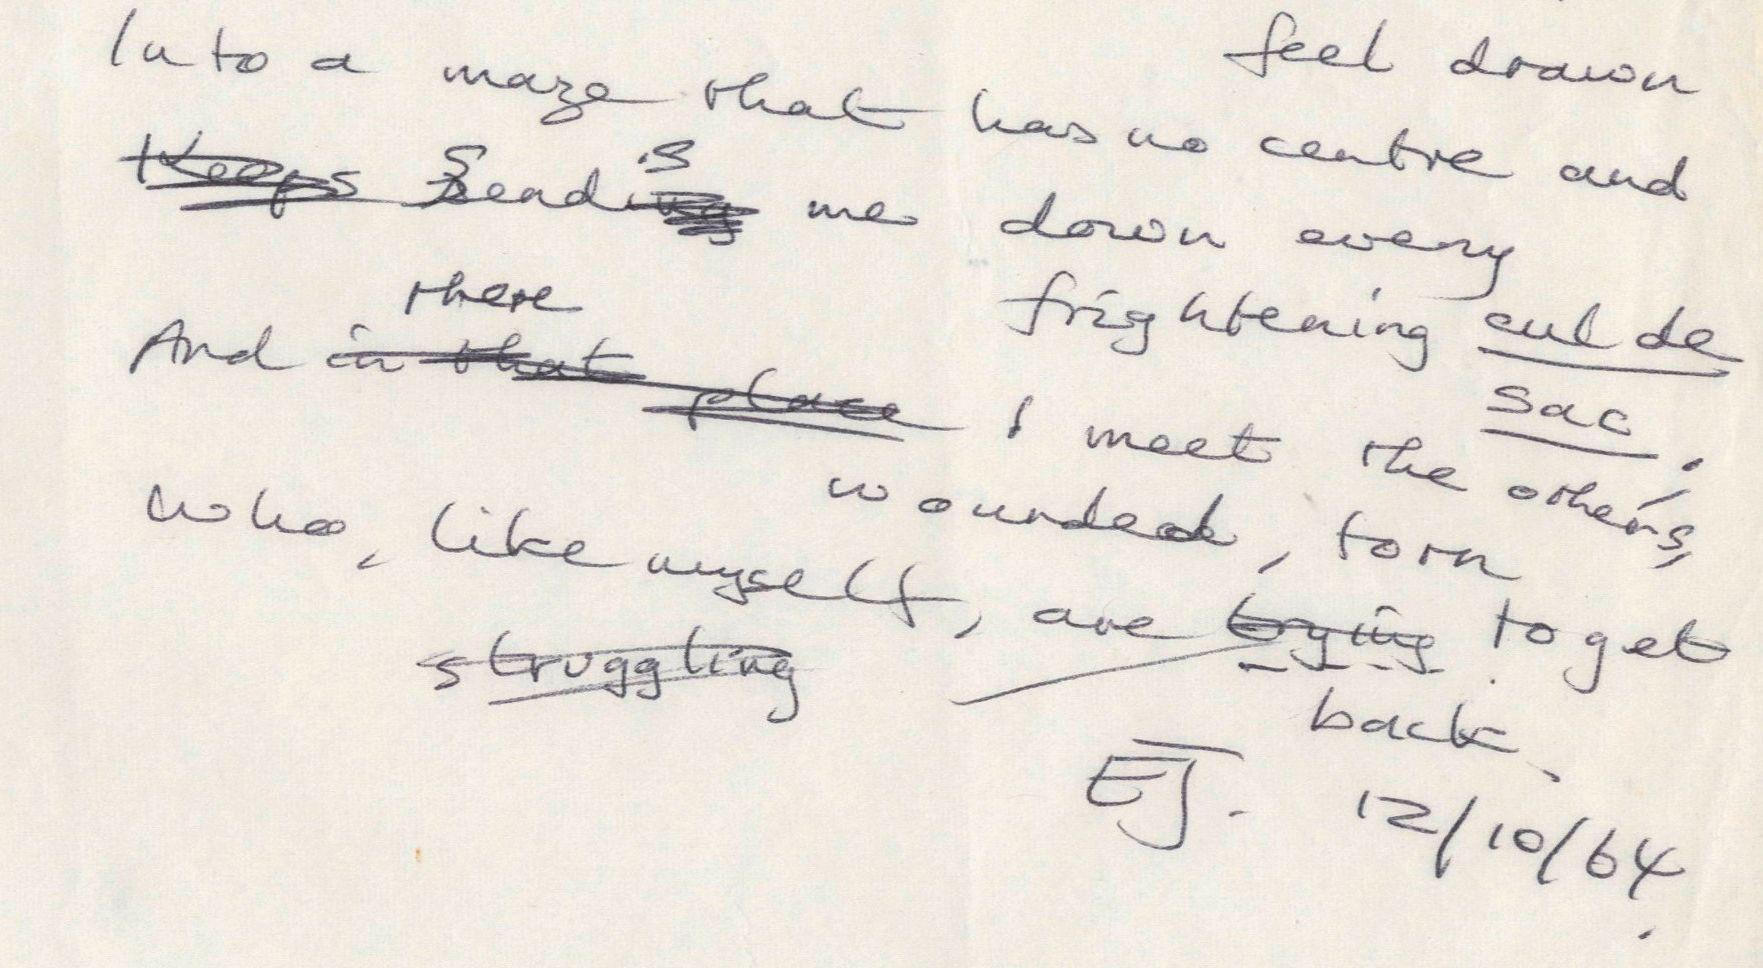 feel drawn
Into a maze that has no centre and
Keeps Sending is me down every
frightening cul de
sac.
And in that place there I meet the others,
wounded, torn
who, like myself, are trying to get
struggling
back.
EJ. 12/10/64.